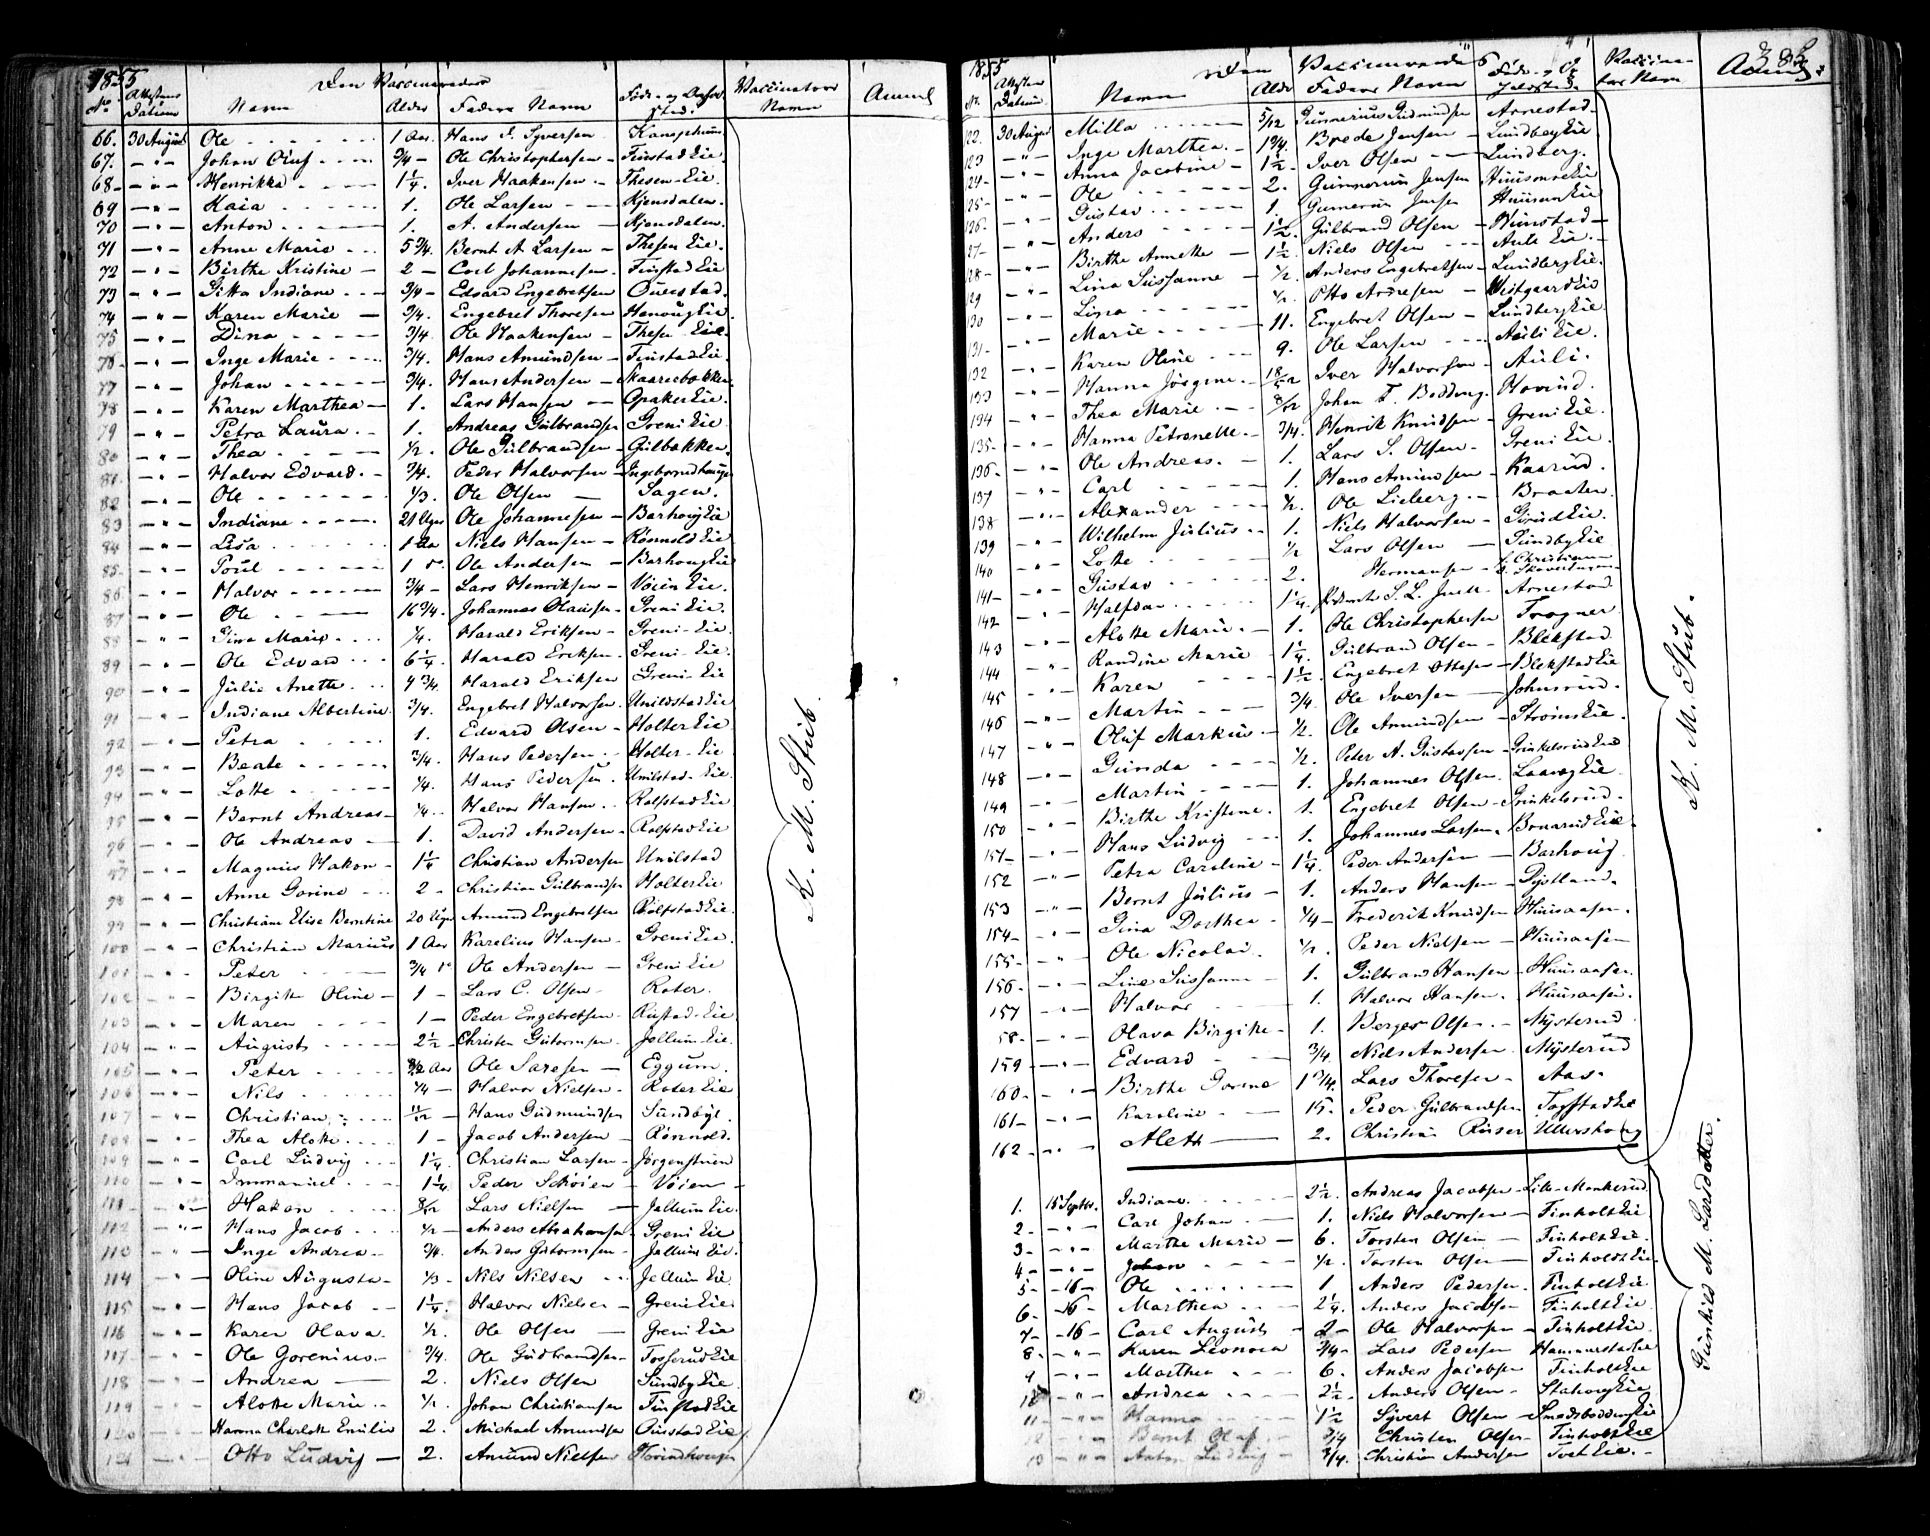 1855
Den Vaccineredes
No. Attestens Datum Navn Alder Faders Navn Føde- og Opholdssted. Vaccinateurs Navn Anm.
66. 30 August Ole 1 Aar. Hans Syversen
67. - " - Johan Oluf 3/4 - Ole Christophersen - Finstad Eie.
68 - " - Henrikka 1 1/4. Iver Haakensen - Thesen Eie.
69 - " - Kaia 1. Ole Larsen - Kjensdalen.
70 - " - Anton 1. A. Andersen - Kjensdalen.
71 - " - Anne Marie 5 3/4. Bernt A Larsen - Thesen Eie.
72 - " - Birthe Kristine - 2 - Carl Johannesen. Finstad Eie
73 - " - Gitta Indiane 3/4 - Edvard Engebretsen
74 - " - Karen Marie - 3/4. Engebret Thoresen Henoug Eie
75 - " - Dina 3/4. Ole Haakensen - Thesen Eie.
76 - " - Inge Marie 3/4. Hans Amundsen - Finstad Eie.
77 - " - Johan 3/4. Hans Andersen - Skaaresbakken.
78 - " - Karen Marthea - 1. Lars Hansen - Opaker Eie.
79 - " - Petra Laura. 1. Andreas Gulbrandsen Greni Eie.
80 - " - Thea 1/2. Ole Gulbrandsen - Gulbakken.
81 - " - Halvor Edvard. 3/4. Peder Halvorsen -
82 - " - Ole 1/3. Ole Olsen - Sagen.
83 - " - Indiane 21 Uger Ole Johannesen - Barhoug Eie
84 - " - Lisa 1 Aar Niels Hansen - Rønnold Eie
85 - " - 1 Ole Andersen - Barhoug Eie
86 - " - Halvor 3/4 - Lars Henriksen - Vøien Eie.
87 - " - Ole 16 3/4. Johannes Olausen - Greni Eie.
88 - " - Gina Marie 1/4. Harald Eriksen - Greni Eie.
89 - " - Ole Edvard 6 1/4. Harald Eriksen - Greni Eie.
90 - " - Julie Anette 9 3/4. Harald Eriksen Greni Eie
91 - " - Indiane Albertine 3/4. Engebret Halvorsen. Unilstad Eie
92 - " - Petra 1. Edvard Olsen - Holter Eie
93 - " - Beate 3/4. Hans Pedersen - Holter Eie
94 - " - Lotte 1/4. Hans Pedersen Unilstad Eie
95 - " - Bernt Andreas - 1/4. Halvor Hansen Rolfstad Eie
96 - " - Ole Andreas - 1. David Andersen - Rolfstad Eie
97 - " - Magnus Hakon - 1 1/4 Christian Andersen Unilstad
98 - " - Anne Gorine 2 - Christian Gulbrandsen Holter Eie
99 - " - Christiane Elise Berntine 20 Uger Amund Engebretsen Rolfstad Eie.
100 - " - Christian Marius 1 Aar Karelius Hansen - Greni Eie.
101 - " - Peter 3/4 Ole Andersen - Greni Eie
102 - " - Birgitte Oline - 1 - Lars C. Olsen - Roter.
103 - " - Maren 1 - Peder Engebretsen - Rustad Eie.
104 - " - August 2 1/2 - Christen Guttormsen - Jellum Eie.
105 - " - Peter Aar Ole Saresen - Eggum.
106 - " - Nils 1/4 - Halvor Nielsen - Roter Eie
107 - " - Christian 11/12 - Hans Gudmundsen Sundbye.
108 - " - Thea Alotte 1 - Jacob Andersen - Rønnold.
109 - " - Carl Ludvig 1 1/4. Christian Larsen -
110 - " - Immanuel 1 1/4 Peder Schøien - Vøien -
111 - " - Hakon 8/12 Lars Nielsen - Jellum Eie.
112 - " - Hans Jacob 1/2 - Anders Abrahamsen Greni Eie
113 - " - Inge Andrea 3/4. Anders Guttormsen - Jellum Eie.
114 - " - Oline Augusta 1/3 - Nils Nilsen Jellum Eie
115 - " - Hans Jacob 1 1/4. Halvor Nielsen - Greni Eie
116 - " - Karen Olava. 1/2. Ole Olsen - Greni Eie
117 - " - Ole Gorenius. 3/4. Ole Gudbrandsen - Fosserud Eie
118 - " - Andrea - 2. Niels Olsen Sundby Eie
119 - " - Alotte Marie 1/2. Johan Christiansen Finstad Eie
120 - " - Hanna Charlotte Emilie 2. Michael Amundsen Ouustad Eie
121 - " - Otto Ludvig - 2. Amund Nielsen Horindhougen
K. M. Stub.
1855
Den Vaccineredes
No. Attestens Datum. Navn Alder Faders Navn Vaccinateurs Navn Anm.
122. 30 August Milla 5/12 Gunnerius Gudmundsen Arnestad.
123 - " - Inge Marthea 1 3/4. Brede Jensen - Lundberg Eie.
124 - " - Anna Jacobine 1 1/2 - Iver Olsen - Lundberg.
125 - " - Ole 2. Gunnerius Jensen
126 - " - Gustav 1. Gunnerius Jensen
127 - " - Anders 1 1/2. Gulbrand Olsen - Hunstad -
128 - " - Birthe Annette - 1 1/2. Niels Olsen Aule Eie.
129 - " - Lina Sussanne - 1/2 Anders Engebretsen - Lundberg Eie.
130 - " - Lina 1/2. Otto Andresen -
131 - " - Marie 11. Engebret Olsen - Lundberg Eie.
132 - " - Karen Oline 9. Ole Larsen Auli Eie.
133 - " - Hanna Jørgine Iver Halvorsen - Auli.
134 - " - Thea Marie 8/12 Johan F. Boddung. Horind.
135 - " - Hanna Petronelle. 3/4. Henrik Knudsen - Greni Eie.
136 - " - Ole Andreas. 1. Lars S. Olsen - Greni Eie.
137 - " - Carl 1. Hans Amundsen - Kaarud.
138 - " - Alexander 1/2. Ole Lieberg - Braaten.
139 - " - Wilhelm Julius 1. Niels Halvorsen - Girud Eie.
140 - " - Lotte 1/2 Lars Olsen - Sundby Eie
141 - " - Gustav 2. Hermansen -
142 - " - Halfdan 1 1/4. S. L. Juell - Arnestad
143 - " - Alotte Marie. 1. Ole Christophersen Trogner
144 - " - Randine Marie 1 1/4. Gulbrand Olsen - Blekstad
145 - " - Karen 1 1/2. Engebret Ottesen - Blekstad Eie
146 - " - Martin 3/4. Ole Iversen - Johnsrud.
147 - " - Oluf Markus 1/2 Ole Amundsen - Strøms Eie.
148 - " - Gunda 1/2. Peter A. Gustavsen - Grinkelsrud Eie
149 - " - Martin 1. Johannes Olsen. Laaveg Eie.
150 - " - Birthe Kristene 1. Engebret Olsen - Grinkelsrud.
151 - " - Hans Ludvig 1. Johannes Larsen. Bonarud Eie.
152 - " - Petra Caroline - 1 1/4. Peder Andersen - Barhoug
153 - " - Bernt Julius - 1. Anders Hansen -
154 - " - Gina Dorthea 1/4 - Frederik Knudsen Huusaasen.
155 - " - Ole Nicolai. 1/2. Peder Nielsen - Huusaasen
156 - " - Line Sussanne 1. Gulbrand Hansen - Huusaasen.
157 - " - Halvor 1. Halvor Hansen. Huusaasen.
58 - " - Olava Birgitte 1. Berger Olsen. Mysterud
159 - " - Edvard 3/4. Niels Andersen. Mysterud
160. - " - Birthe Gorine 1 3/4. Lars Thoresen - Aas.
161 - " - Karoline 15. Peder Gulbrandsen Tofstad Eie
162 - " - Aleth 2. Christian Ullershoug
K. M. Stub.
1. 15 Septbr. Indiane 2 1/2. Andreas Jacobsen Lille-Mankerud.
2 - " - Carl Johan 1. Niels Halvorsen - Finholt Eie.
3 - " - Marthe Marie - 6. Torsten Olsen - Finholt Eie.
4 - " - Johan 1/2. Torsten Olsen - Finholdt Eie.
5 - 16 - Ole 1. Anders Pedersen. Finholt Eie.
6 - 16 Marthea 2 1/4. Anders Jacobsen Finholt Eie
7 - 16 - Carl August 2 - Ole Halvorsen - Finholt Eie.
8 - " - Karen Leonora 3/4 - Lars Pedersen Hammerstad Eie
9 - " - Marthea 6. Anders Jacobsen Finholt Eie
10 - " - Andrea 2 1/2. Anders Olsen - Stahoug Eie
11 - " - Hanna 1 1/2 Syvert Olsen -
12 - " - Bernt Olaf 3/4 Christen Olsen - Finholt Eie
13 - " - Anton Ludvig 3/4. Christian Andersen Tveit Eie.
Gunhild M. Larsdatter.